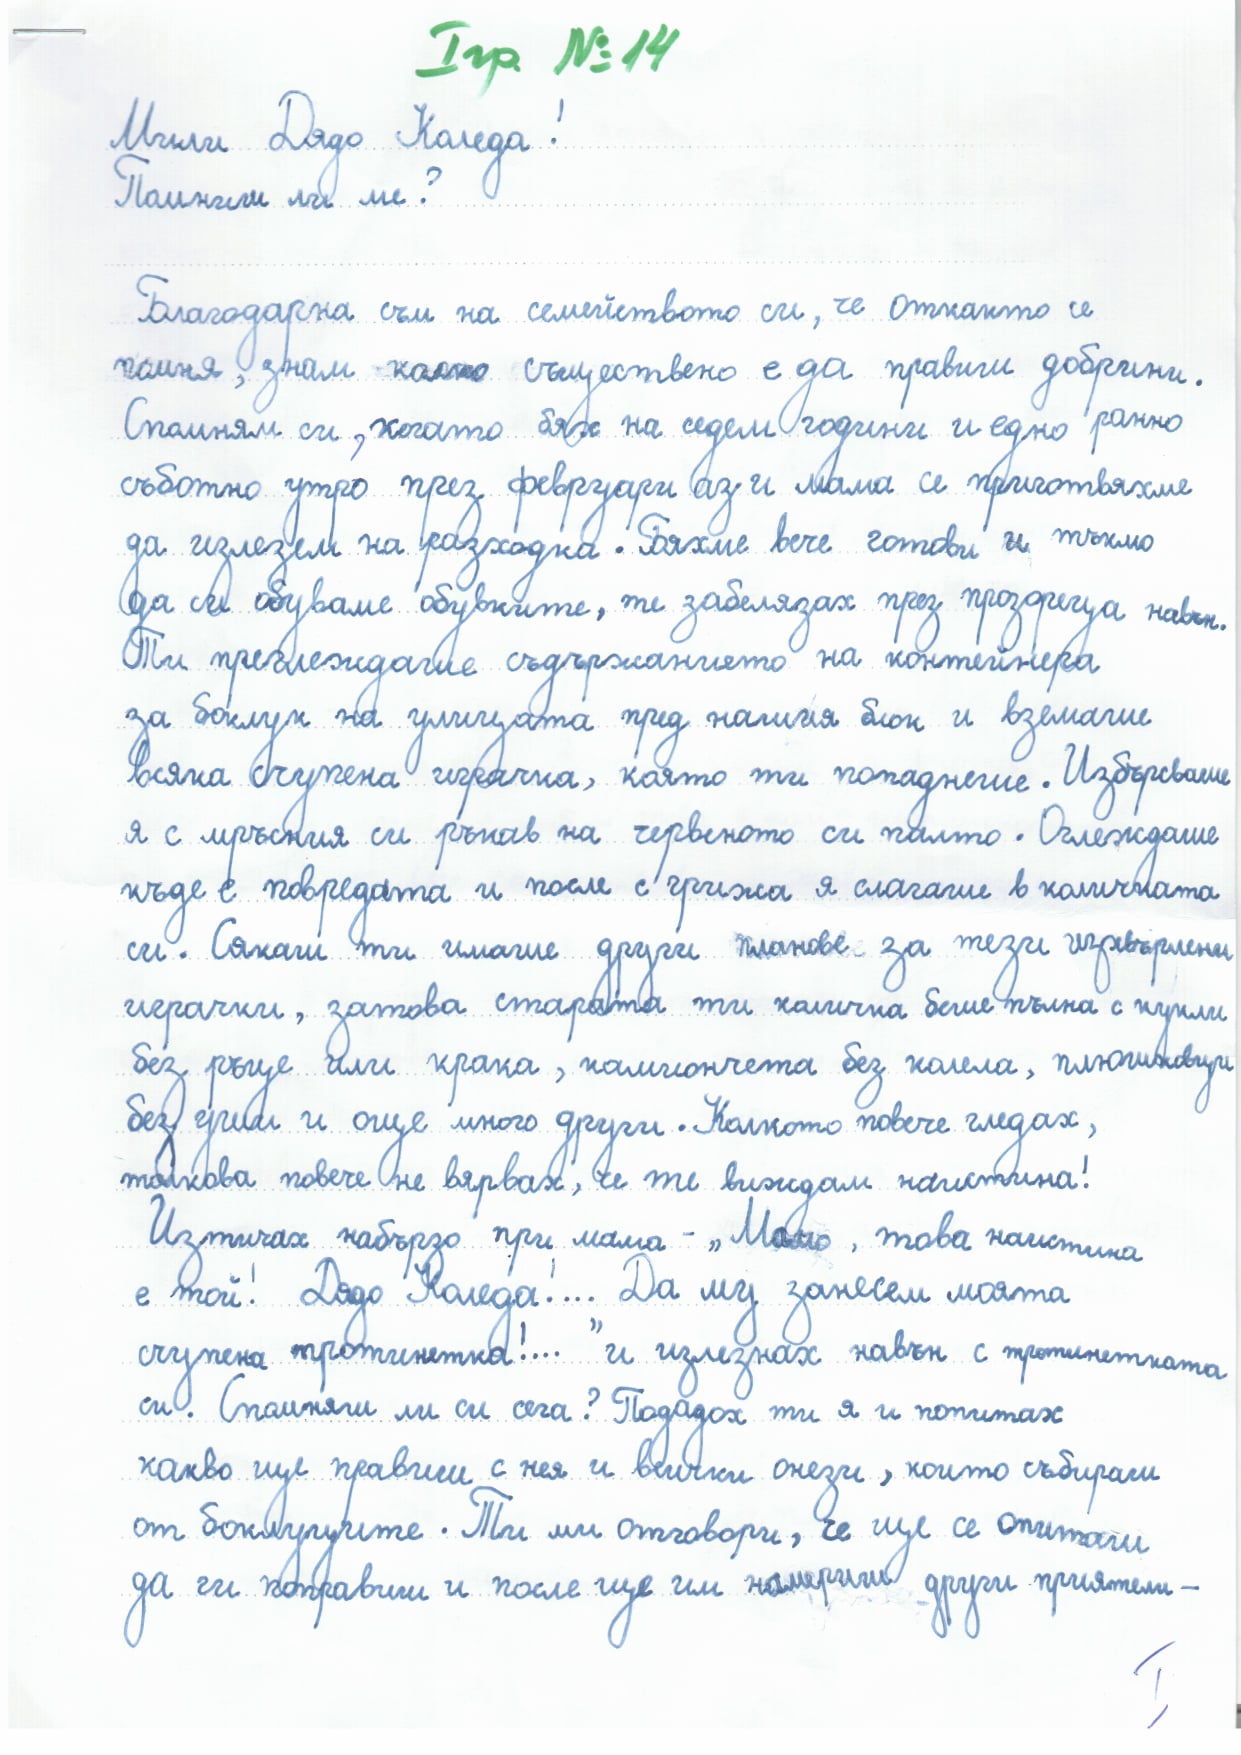 I гр. № 14
Мили Дядо Коледа!
Помниш ли ме?
Благодарна съм на семейството си, че откакто се
помня, знам колко съществено е да правиш добрини.
Спомням си, когато бях на седем години и едно ранно
съботно утро през февруари аз и мама се приготвяхме
да излезем на разходка. Бяхме вече готови и тъкмо
да си обуваме обувките, те забелязах през прозореца навън.
Ти преглеждаше съдържанието на контейнера
за боклук на улицата пред нашия блок и вземаше
всяка счупена играчка, която ти попаднеше. Избърсваше
я с мръсния си ръкав на червеното си палто. Оглеждаше
къде е повредата и после с грижа я слагаше в количката
си. Сякаш ти имаше други планове за тези изхвърлени
играчки, затова старата ти количка беше пълна с кукли
без ръце или крака, камиончета без колела, плюшковци
без уши и още много други. Колкото повече гледах,
толкова повече не вярвах, че те виждам наистина!
Изтичах набързо при мама - „Мамо, това наистина
е той! Дядо Коледа!... Да му занесем моята
счупена тротинетка!..." и излезнах навън с тротинетката
си. Спомняш ли си сега? Подадох ти я и попитах
какво ще правиш с нея и всички онези, които събираш
от боклуците. Ти ми отговори, че ще се опиташ
да ги поправиш и после ще им намериш други приятели -
I